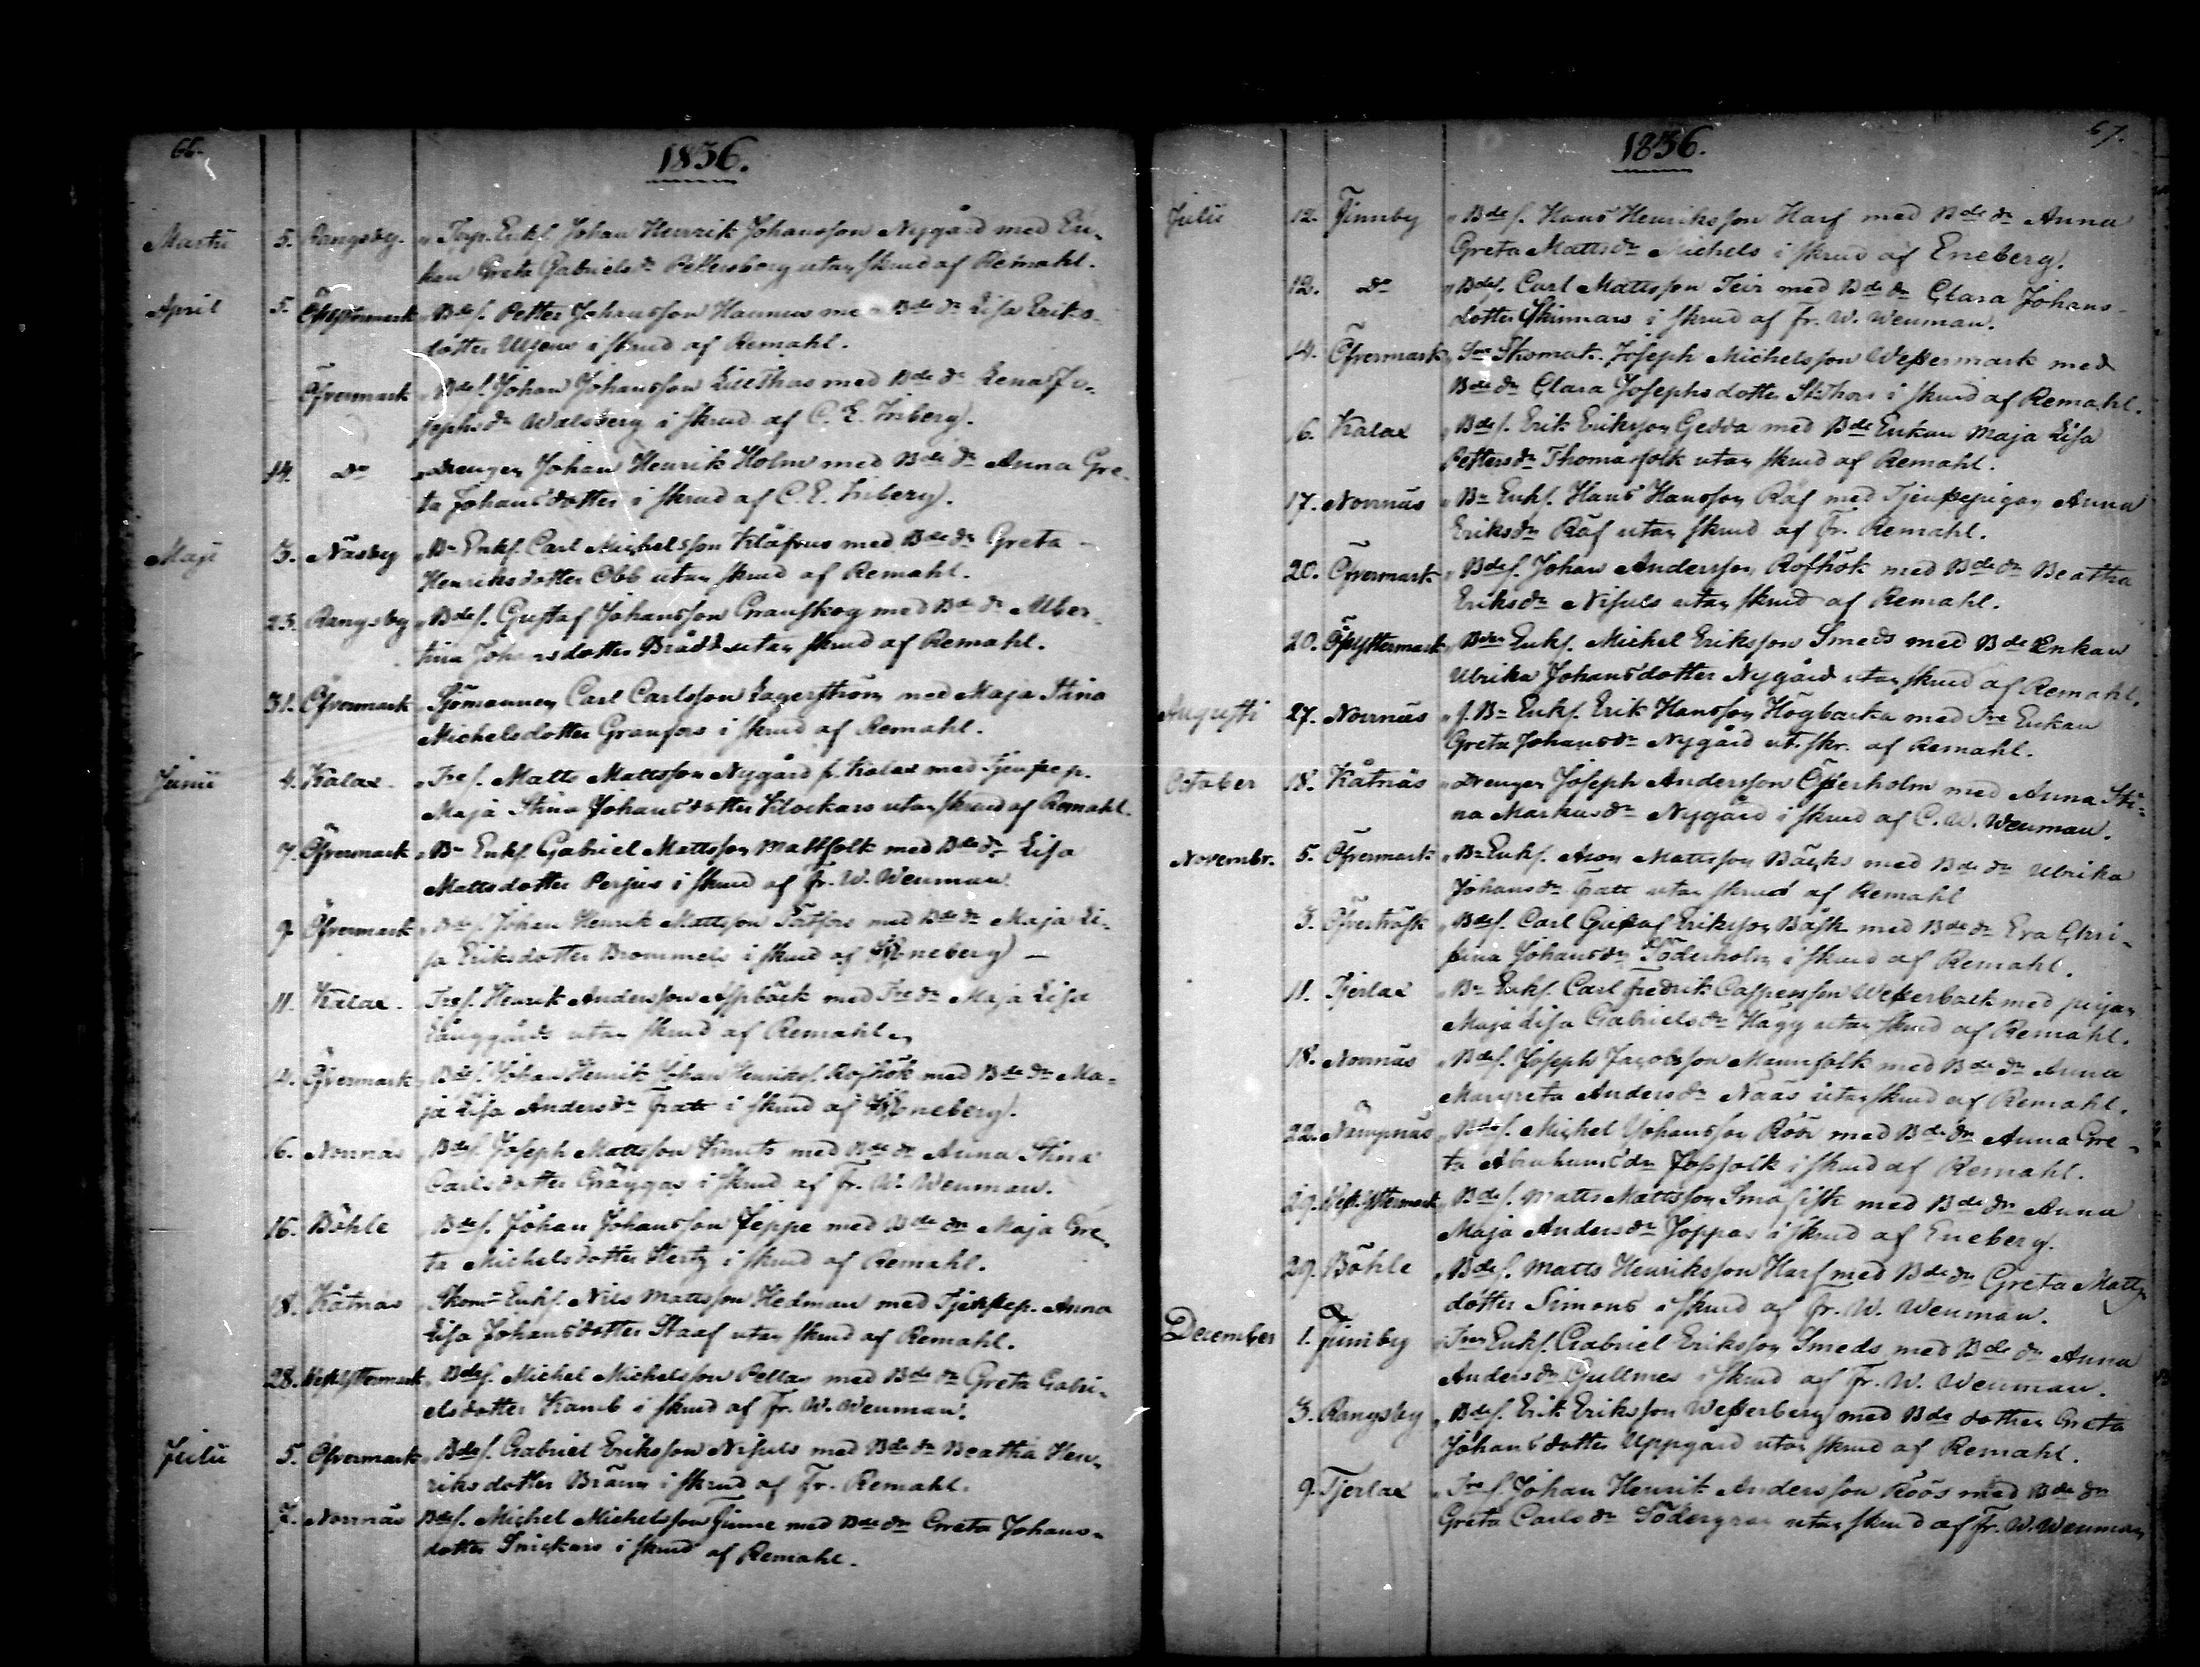 66.
1836.
Martii 5. Rangsby. Torp. Enkf. Johan Henrik Johansson Nygård med En-
kan Greta Gabrielsdr Pettersborg utan skrud af Remahl.
April 5. Öfvermark Bdes. Petter Johansson Hannus med Bde dr Lisa Eriks-
dotter Ulfsens i skrud af Remahl.
Öfvermark Bdes. Johan Johansson LillThas med Bde dr Lena Jo-
sephsdr Walsberg i skrud af C. E. Inberg).
14. Do Drengen Johan Henrik Holm med Bde dr Anna Gre-
ta Johansdotter i skrud af C. E. Inberg).
Maji 3. Näsby Bn Enkf. Carl Michelsson Klåfrus med Bde dr Greta
Henriksdotter Obb utan skrud af Remahl.
23. Rangsby Bdes. Gustaf Johansson Granskog med Bde dr Alber-
tina Johansdotter Brådd utan skrud af Remahl.
31. Öfvermark Sjömannen Carl Carlsson Lagerström med Maja Stina
Michelsdotter Granfors i skrud af Remahl.
Junii 4. Kalax Tres. Matts Mattsson Nygård fr. Kalax med Tjenstep.
Maja Stina Johansdotter Klockars utan skrud af Remahl.
7. Öfvermark Bn Enkf. Gabriel Mattsson Mattfolk med Bde dr Lisa
Mattsdotter Perjus i skrud af Fr. W. Wenman
9 Öfvermark Bdes. Johan Henrik Mattsson Tåtfors med Bde dr Maja Li-
sa Eriksdotter Brommels i skrud af Eneberg)
11. Kalax. Tres. Henrik Andersson Aspbäck med Tre dr Maja Lisa
Långgårds utan skrud af Remahl.
12. Öfvermark Bdes. Johan Henrik Johan Henrikss. Rofhök med Bde dr Ma-
ja Lisa Andersdr Fratt i skrud af Eneberg).
6. Norrnäs Bdes. Joseph Mattsson Knuts med Bde dr Anna Stina
Carlsdotter Gräggas i skrud af Fr. W. Wenman.
16. Böhle Bdes. Johan Johansson Jeppe med Bde dr Maja Gre-
ta Michelsdotter Hertz i skrud af Remahl.
18. Kåtnäs Skom. Enkf. Nils Mattsson Hedman med Tjenstep. Anna
Lisa Johansdotter Staaf utan skrud af Remahl.
28. Westyttermark Bdes. Michel Michelsson Pellas med Bde dr Greta Gabri-
elsdotter Kamb i skrud af Fr. W. Wenman.
Julii 5. Öfvermark Bdes. Gabriel Eriksson Nisuls med Bde dr Beatha Hen-
riksdotter Bränn i skrud af Fr. Remahl.
7. Norrnäs Bdes. Michel Michelsson Finne med Bde dr Greta Johans-
dotter Snickars i skrud af Remahl.
67.
1836.
Julii 12. Finnby Bdes. Hans Henriksson Harf med Bde dr Anna
Greta Mattsdr Michels i skrud af Eneberg).
12. Do Bdes. Carl Mattsson Teir med Bde dr Clara Johans-
dotter Skinnars i skrud af Fr. W. Wenman.
14. Öfvermark Sn Skomak. Joseph Michelsson Westermark med
Bde dr Clara Josephsdotter St.Thors i skrud af Remahl.
6. Kalax Bdes. Erik Eriksson Gedda med Bde Enkan Maja Lisa
Pettersdr Thomasfolk utan skrud af Remahl.
17. Norrnäs Bn Enkf. Hans Hansson Räf med Tjenstepigan Anna
Eriksdr Räf utan skrud af Fr. Remahl.
20. Öfvermark Bdes. Johan Andersson Rofhök med Bde dr Beatha
Eriksdr Nisuls utan skrud af Remahl.
20. Östyttermark Bden Enkf. Michel Eriksson Smeds med Bde Enkan
Ulrika Johansdotter Nygård utan skrud af Remahl.
Augusti 27. Norrnäs f. Bn Enkf. Erik Hansson Högbacka med Tre Enkan
Greta Johansdr Nygård ut. skr. af Remahl.
October 18. Kåtnäs Drengen Joseph Andersson Österholm med Anna Sti-
na Markusdr Nygård i skrud af C. W. Wenman.
Novembr. 5. Öfvermark Bn Enkf. Aron Mattsson Bäcks med Bde dr Ulrika
Johansdr Fratt utan skrud af Remahl
3. Öfverträsk Bdes. Carl Gustaf Eriksson Båsk med Bde dr Eva Chri-
stina Johansdr Söderholm i skrud af Remahl.
11. Tjerlax Bn Enkf. Carl Fredrik Caspersson Westerback med pigan
Maja Lisa Gabrielsdr Hägg utan skrud af Remahl.
18. Norrnäs Bdes. Joseph Jacobsson Mannfolk med Bde dr Anna
Margreta Andersdr Nääs utan skrud af Remahl.
22. Nämpnäs Bdes. Michel Johansson Röör med Bde dr Anna Gre-
ta Abrahamsdr Jossfolk i skrud af Remahl.
29. Westyttermark Bdes. Matts Mattsson Småfisk med Bde dr Anna
Maja Andersdr Joppas i skrud af Eneberg.
29. Böhle Bdes. Matts Henriksson Harf med Bde dr Greta Matts
dotter Simons i skrud af Fr. W. Wenman.
December 1. Finnby Tren Enkf. Gabriel Eriksson Smeds med Bde dr Anna
Andersdr Gullmes i skrud af Fr. W. Wenman.
3. Rangsby Bdes. Erik Eriksson Westerberg med Bde dotter Greta
Johansdotter Uppgård utan skrud af Remahl.
9. Tjerlax Tres. Johan Henrik Andersson Röös med Bde dr
Greta Carlsdr Södergran utan skrud af Fr. W. Wenman